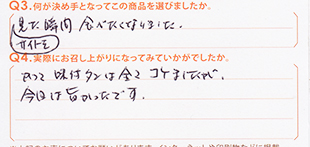 Q3.何が決め手となってこの商品を選びましたか。
見た瞬間 食べたくなりました。
サイトを
Q4.実際にお召し上がりになってみていかがでしたか。
かつて 味付タンは全て コケましたが、
今回は旨かったです。